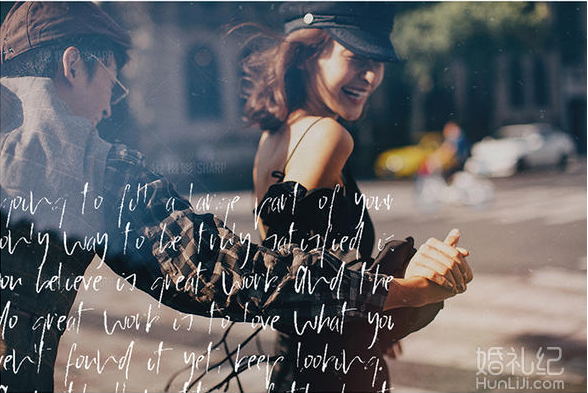 going to fill a large part of your
only way to be truly satisfied is
you believe is great work. And the
do great work is to love what you
ven't found it yet, keep looking.
婚礼纪
HunLiJi.com